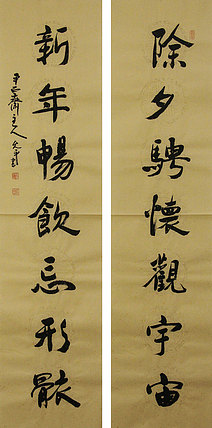 除夕騁懷觀宇宙
新年暢飲忘形骸